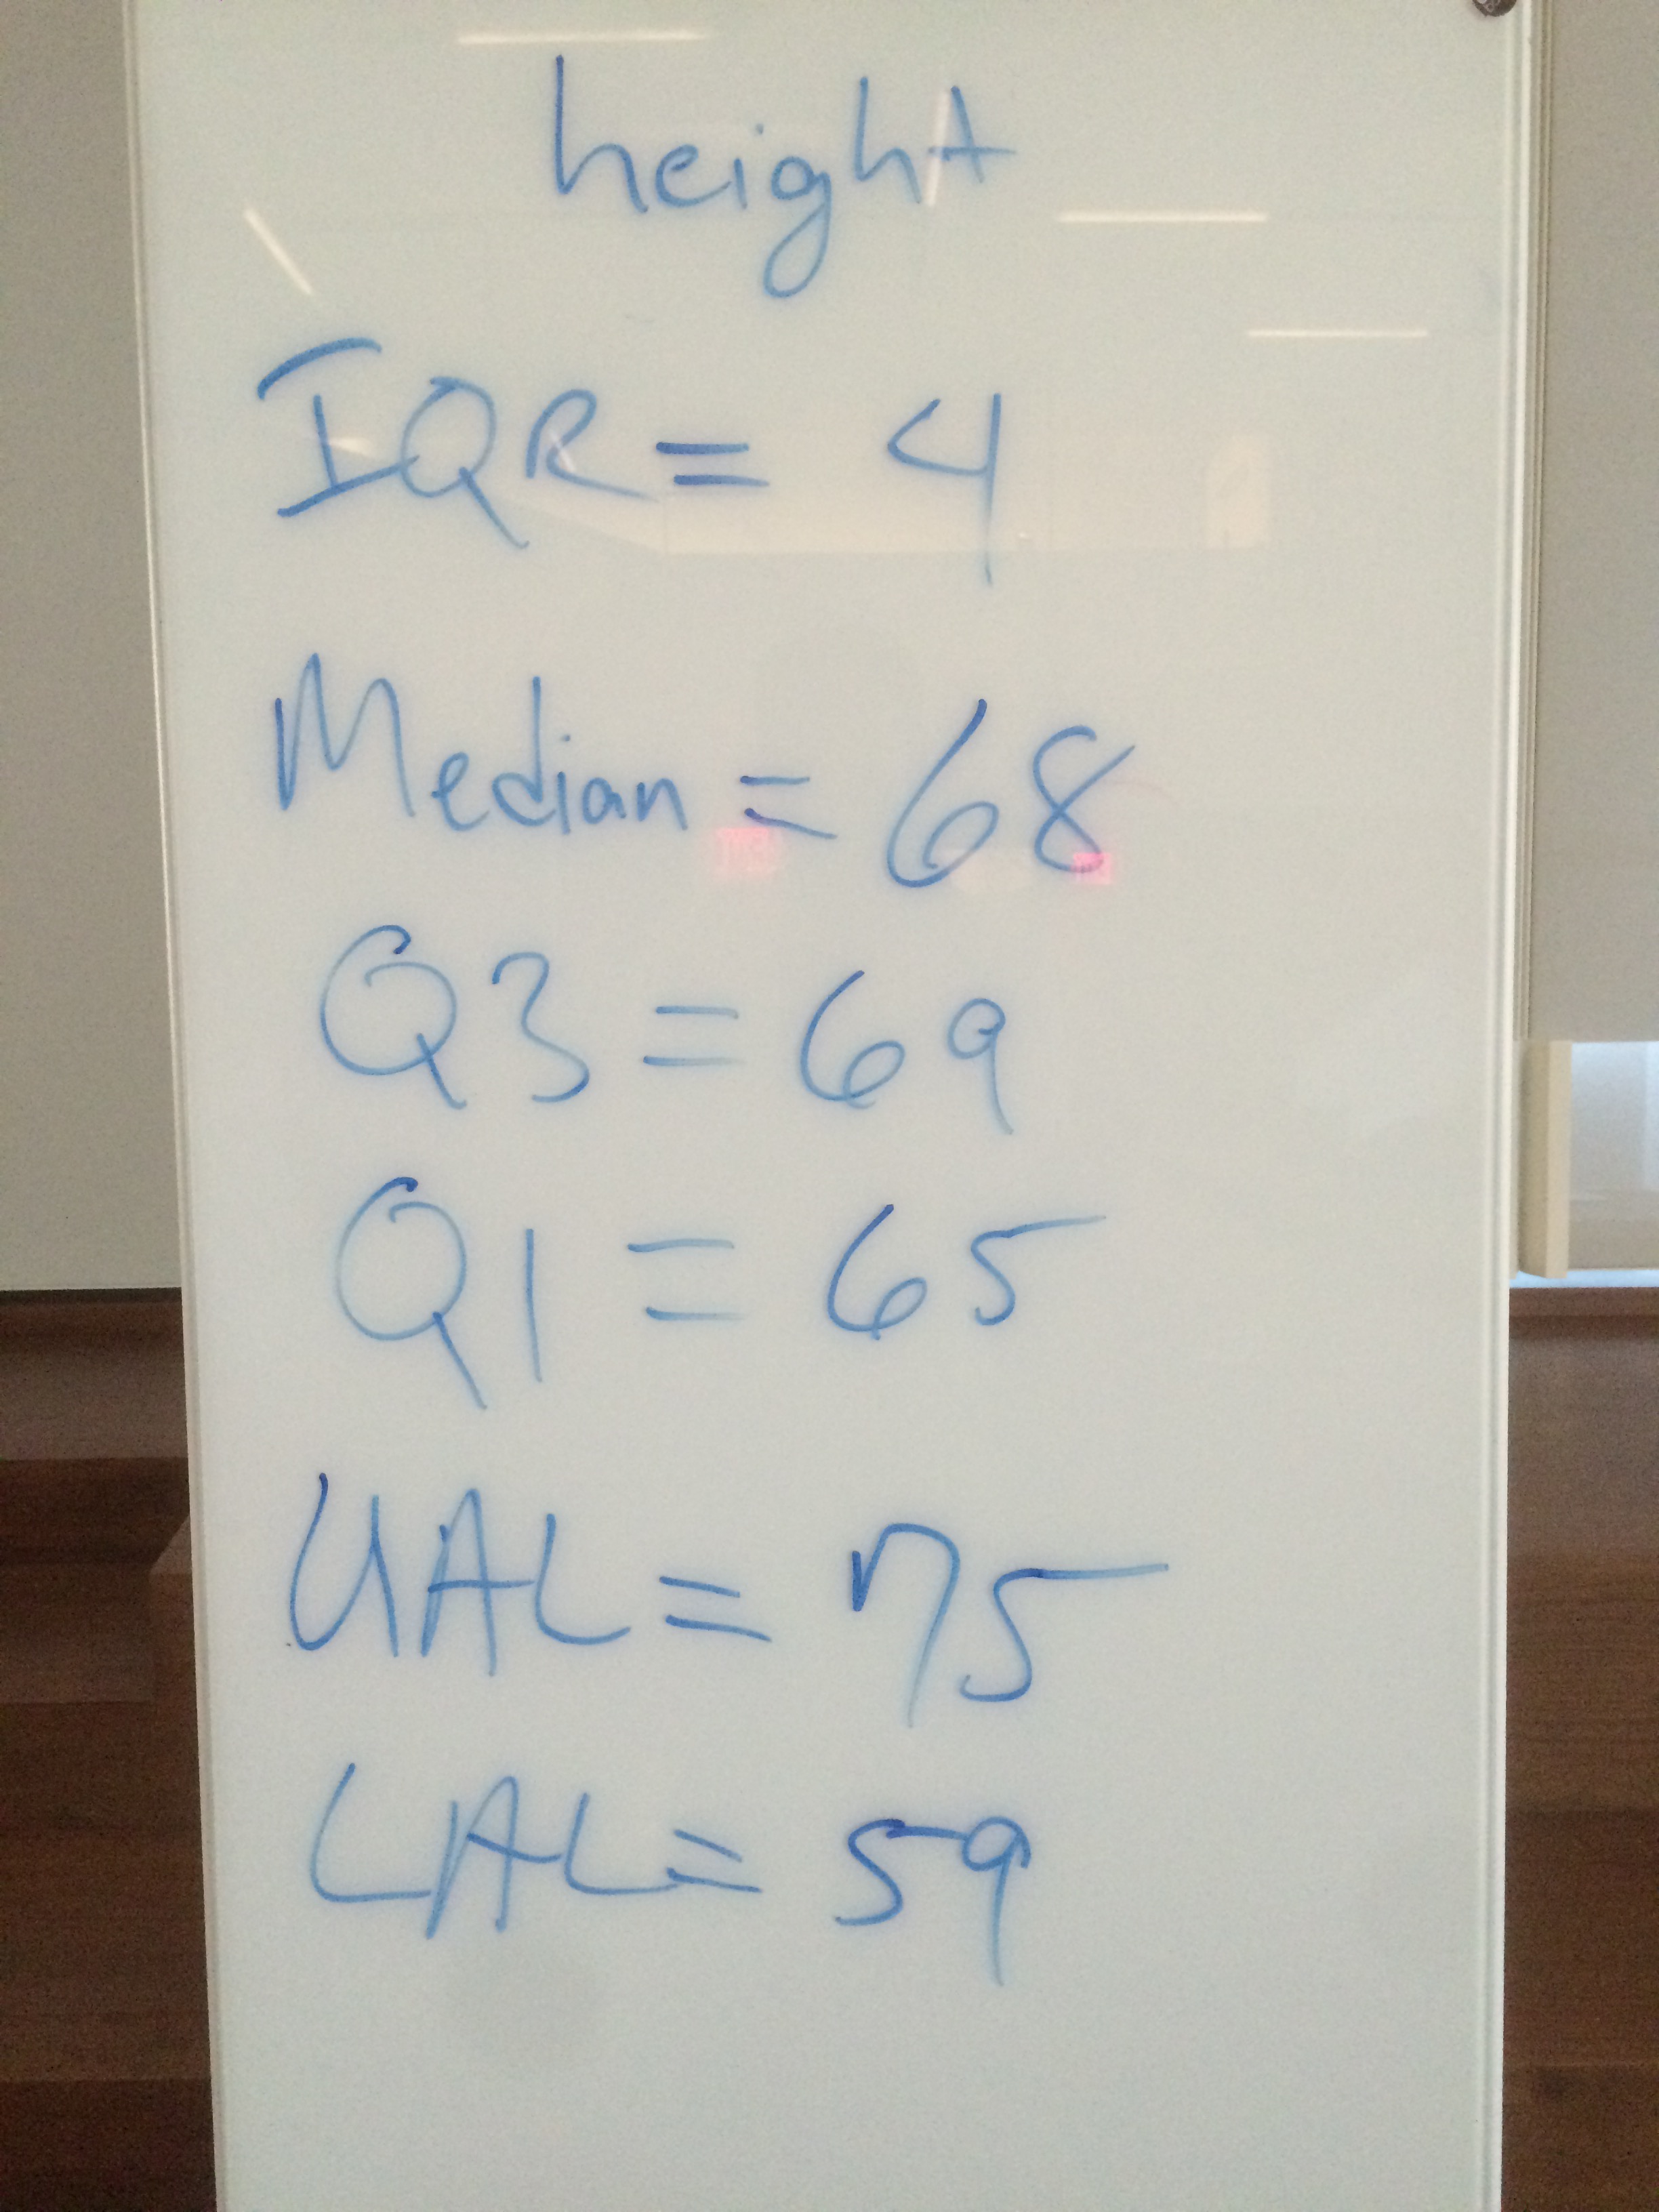 height
IQR = 4
Median = 68
Q3 = 69
Q1 = 65
UAL = 75
LAL = 59